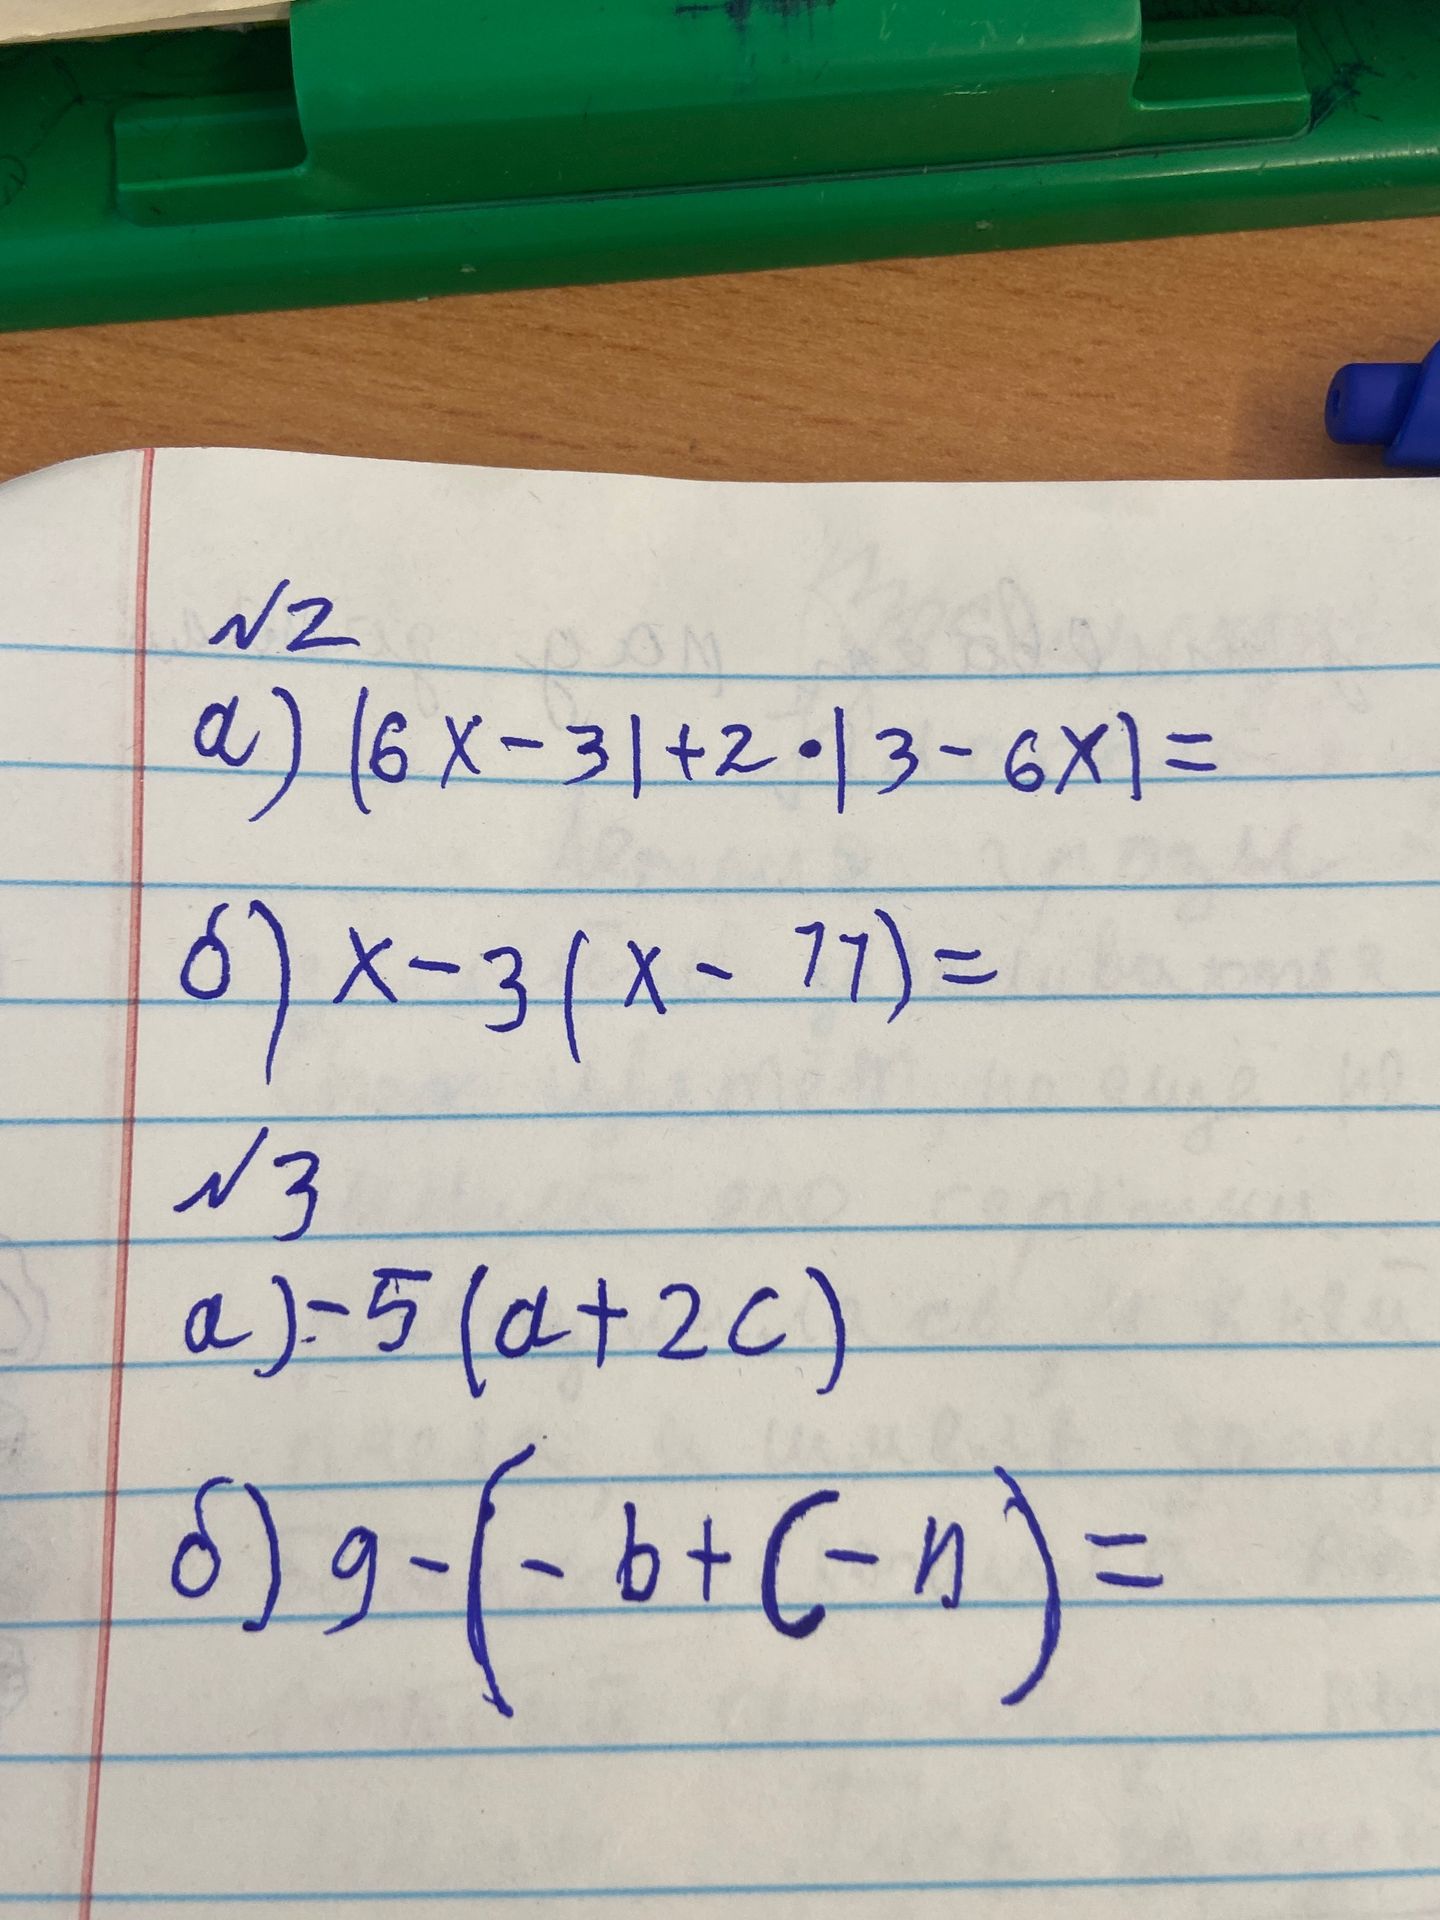 №2
а) |6x-3|+2•|3-6x|=
б) x-3(x-77)=
№3
а) -5(a+2c)
б) 9-(-b+(-n)=